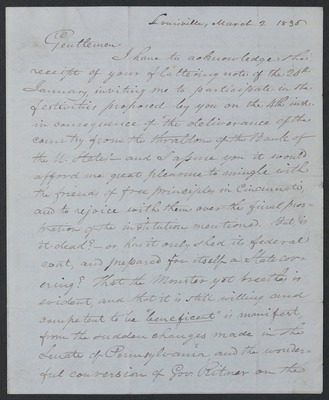 Louisville, March 2 1836
Gentlemen
I have to acknowledge the
receipt of your flattering note of the 20th
January inviting me to participate in the
festivities proposed by you on the 4th inst.
in consequence of the deliverance of the
country from the thraldom of the Bank of
the U. States and I assure you it would
afford me great pleasure to mingle with
the friends of free principles in Cincinnati,
and to rejoice with them over the final pros-
tration of the institution mentioned. But is
it dead? - or has it only shed its federal
coat, and prepared for itself a State cov-
ering? That the Monster yet breathes is
evident, and that it is still willing and
competent to be "beneficent" is manifest,
from the sudden changes made in the
Senate of Pennsylvania and the wonder-
ful conversion of Gov. Ritner on the